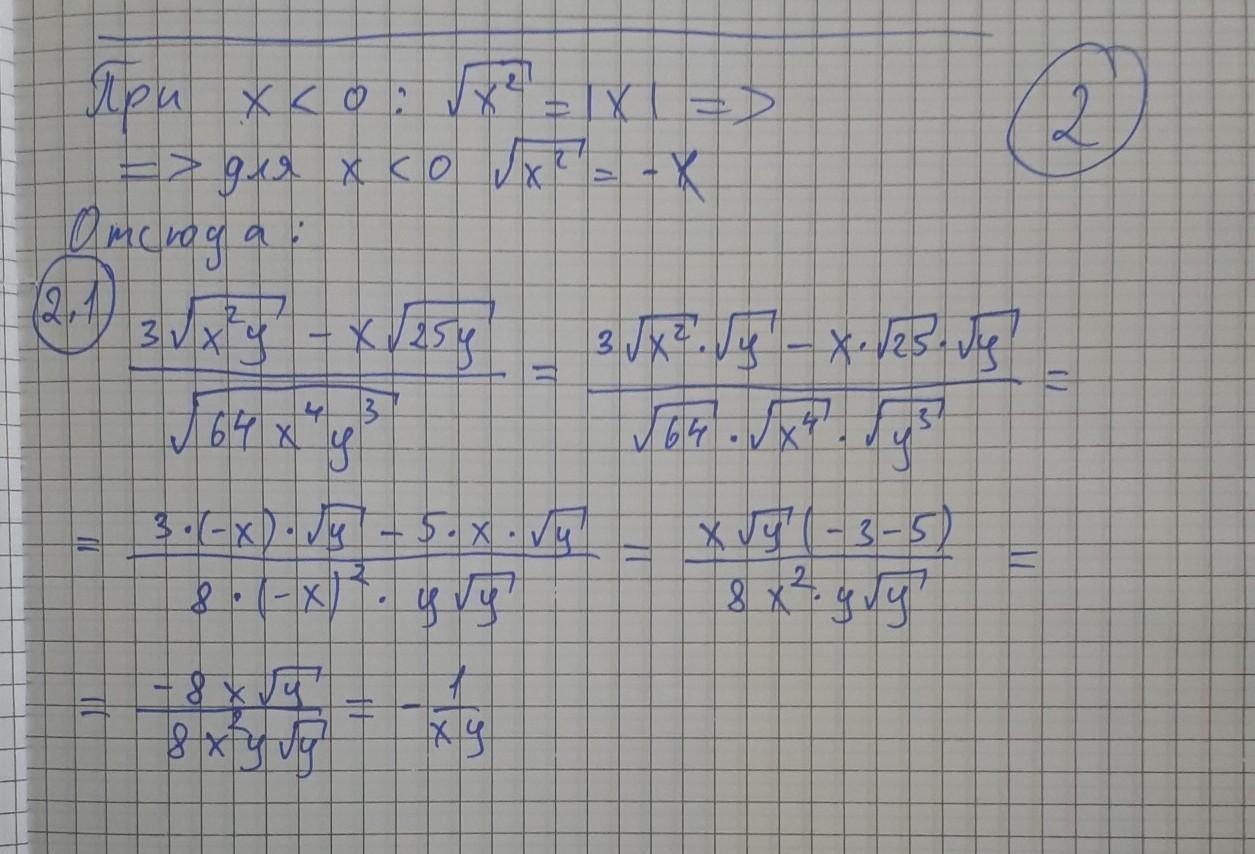 При x < 0 : √x² = |x| =>
=> для x < 0 √x² = -x
2
Отсюда:
2.1
(3√(x²y) - x√(25y)) / √(64x⁴y³) = (3√x² · √y - x · √25 · √y) / (√64 · √x⁴ · √y³) =
= (3·(-x)·√y - 5·x·√y) / (8·(-x)²·y√y) = (x√y(-3-5)) / (8x²·y√y) =
= (-8x√y) / (8x²y√y) = -1/(xy)